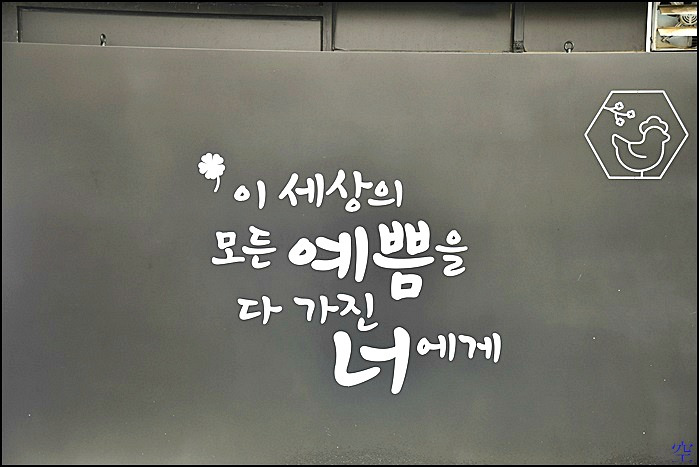 이 세상의
모든 예쁨을
다 가진
너에게
空